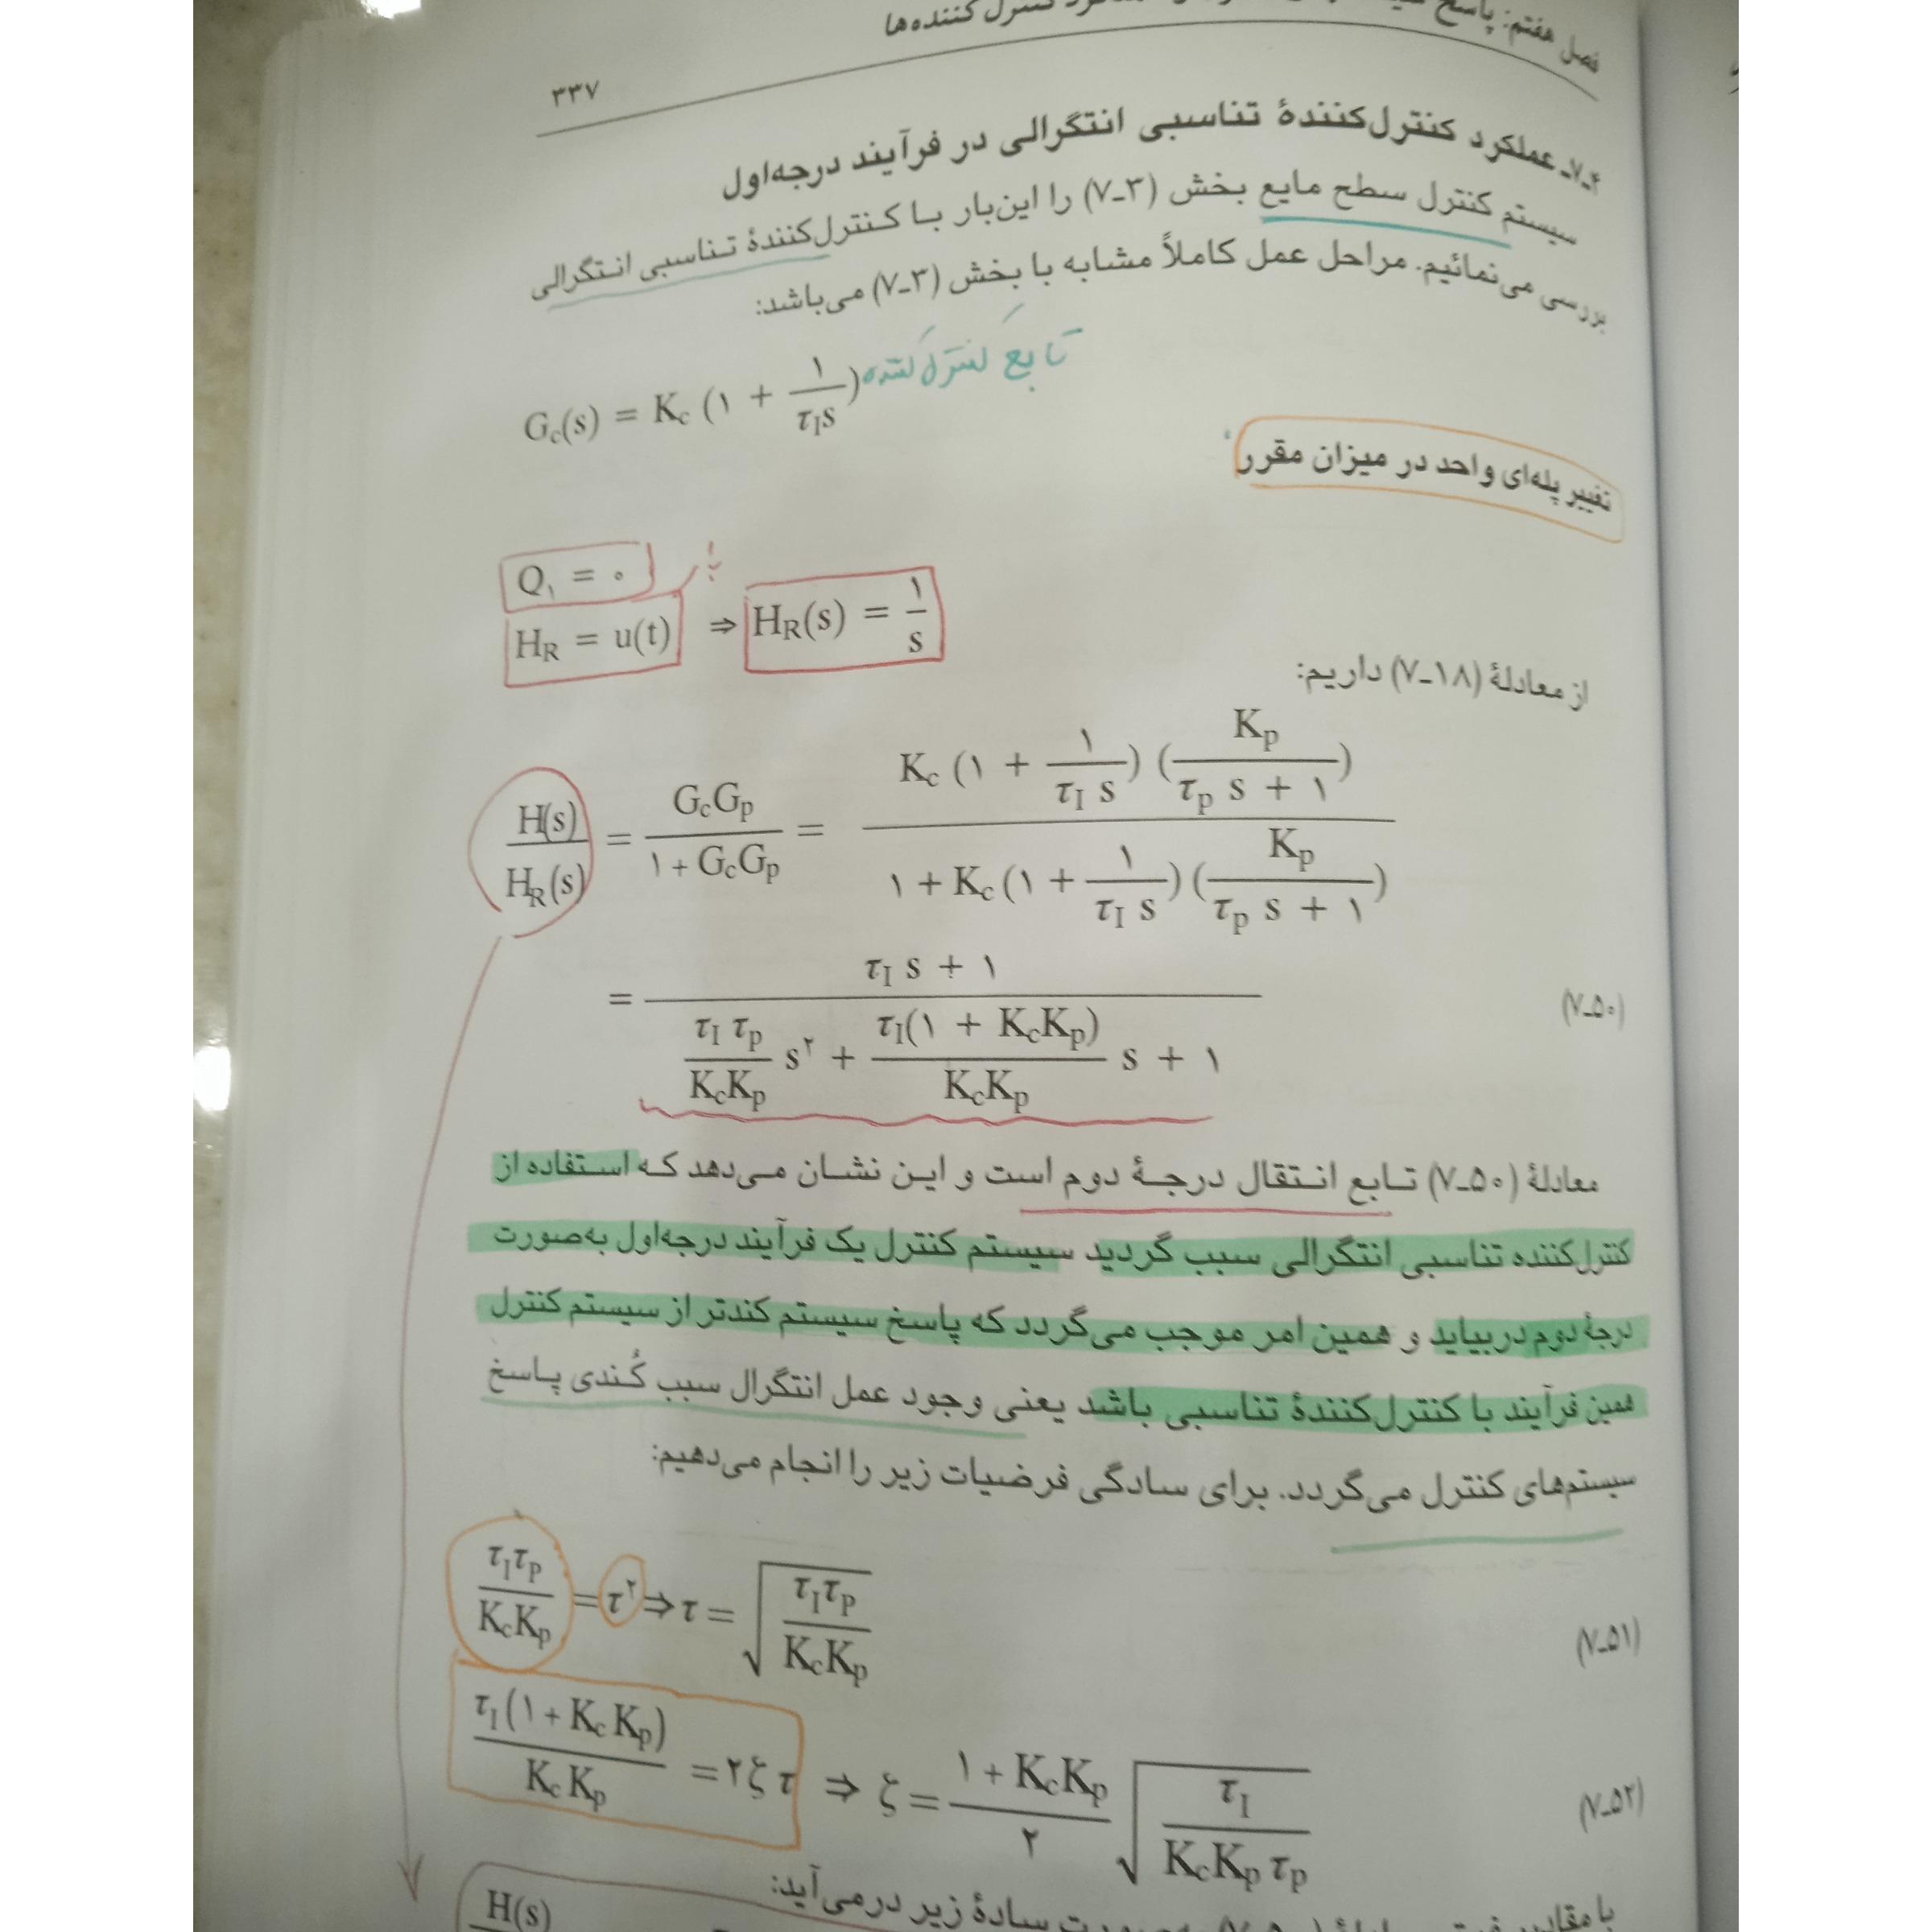 فصل هفتم: پاسخ
کنترل کننده‌ها
۳۳۷
۷ـ۴ـ عملکرد کنترل‌کنندهٔ تناسبی انتگرالی در فرآیند درجه‌اول
سیستم کنترل سطح مایع بخش (۷ـ۳) را این‌بار با کنترل‌کنندهٔ تناسبی انتگرالی
بررسی می‌نمائیم. مراحل عمل کاملاً مشابه با بخش (۷ـ۳) می‌باشد:
G_c(s) = K_c (۱ + ۱/(τ_I s)) تابع کنترل کننده
تغییر پله‌ای واحد در میزان مقرر
Q_۱ = ۰
H_R = u(t) ⇒ H_R(s) = ۱/s
از معادلهٔ (۷ـ۱۸) داریم:
H(s)/H_R(s) = G_cG_p/(۱ + G_cG_p) = [K_c (۱ + ۱/(τ_I s)) (K_p/(τ_p s + ۱))] / [۱ + K_c (۱ + ۱/(τ_I s)) (K_p/(τ_p s + ۱))]
= (τ_I s + ۱) / ((τ_I τ_p/K_cK_p) s^۲ + (τ_I(۱ + K_cK_p)/K_cK_p) s + ۱) (۷ـ۵۰)
معادلهٔ (۷ـ۵۰) تابع انتقال درجهٔ دوم است و این نشان می‌دهد که استفاده از
کنترل‌کننده تناسبی انتگرالی سبب گردید سیستم کنترل یک فرآیند درجه‌اول به‌صورت
درجهٔ دوم دربیاید و همین امر موجب می‌گردد که پاسخ سیستم کندتر از سیستم کنترل
همین فرآیند با کنترل‌کنندهٔ تناسبی باشد یعنی وجود عمل انتگرال سبب کُندی پاسخ
سیستم‌های کنترل می‌گردد. برای سادگی فرضیات زیر را انجام می‌دهیم:
τ_Iτ_P/K_cK_p = τ^۲ ⇒ τ = √(τ_Iτ_P/K_cK_p) (۷ـ۵۱)
τ_I(۱ + K_cK_p)/K_cK_p = ۲ζτ ⇒ ζ = (۱ + K_cK_p)/۲ √(τ_I/(K_cK_p τ_p)) (۷ـ۵۲)
صورت سادهٔ زیر درمی‌آید:
H(s)